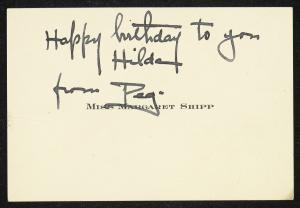 Happy birthday to you
Hilda
from Peg.
MISS MARGARET SHIPP